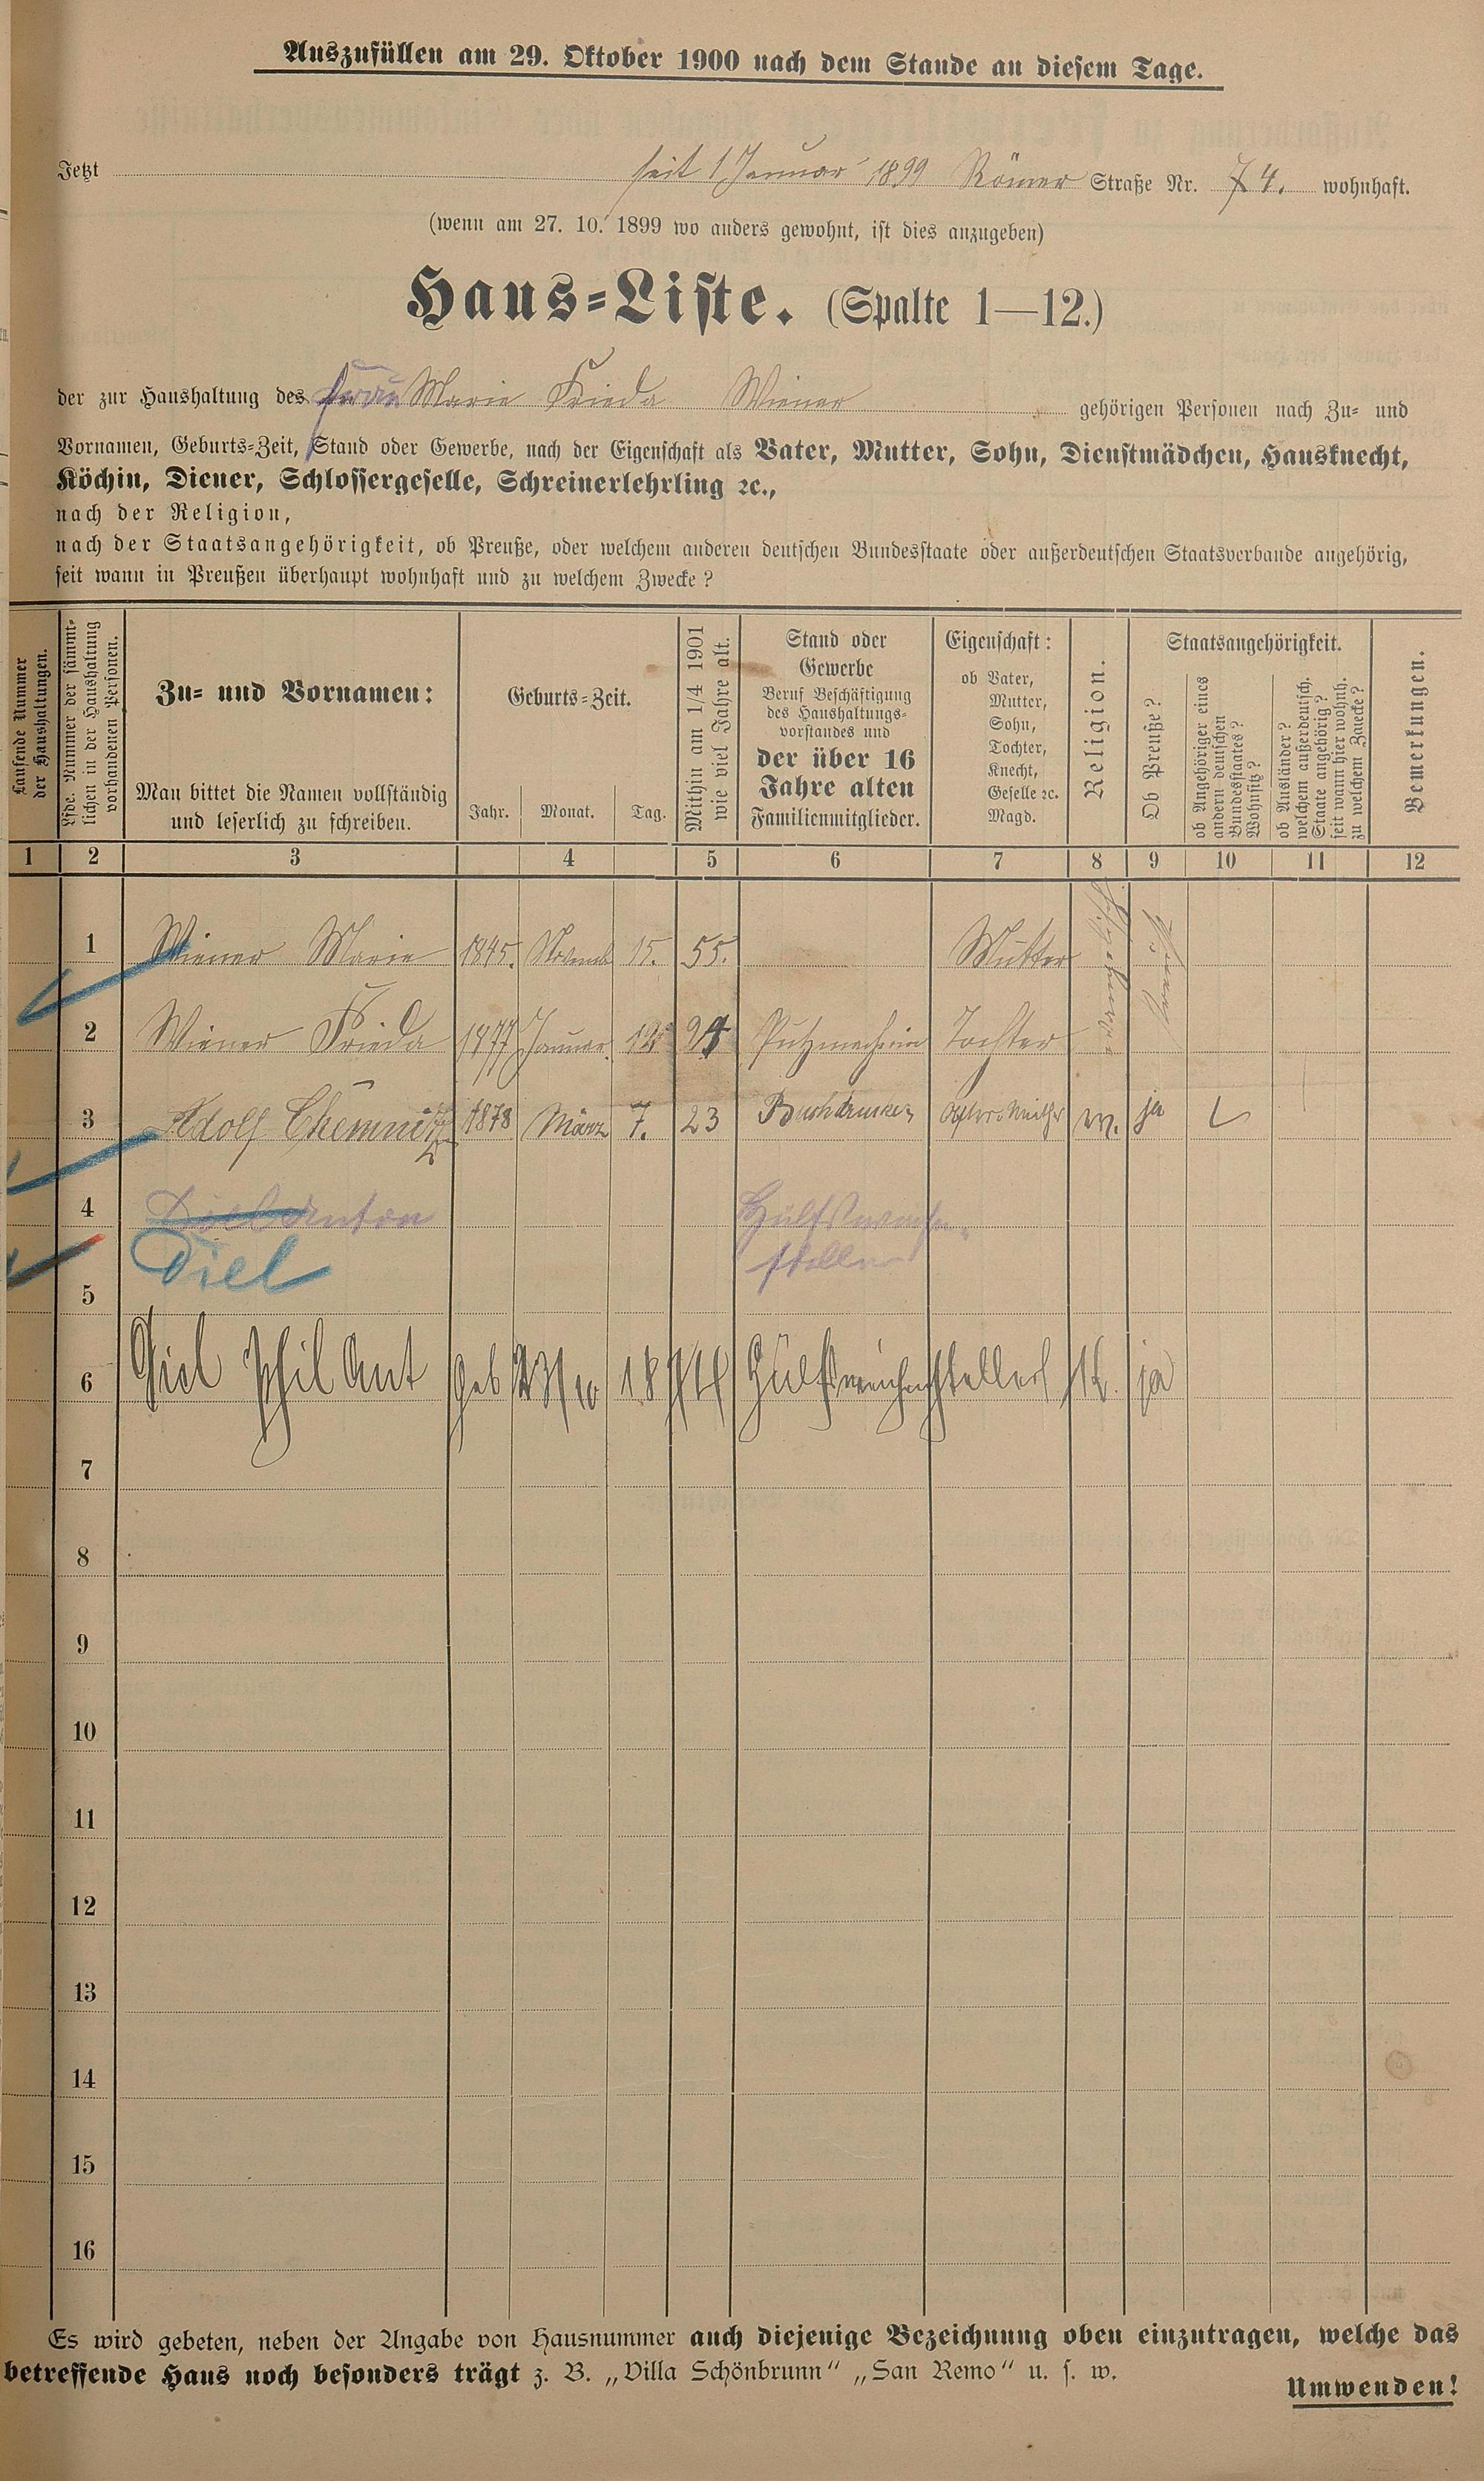 Auszufüllen am 29. Oktober 1900 nach dem Stande an diesem Tage.
Jetzt seit 1 Januar 1899 Römer Straße Nr. 74. wohnhaft.
(wenn am 27. 10. 1899 wo anders gewohnt, ist dies anzugeben)
Haus-Liste. (Spalte 1—12.)
der zur Haushaltung des Frau Marie Frieda Wiener gehörigen Personen nach Zu- und
Vornamen, Geburts-Zeit, Stand oder Gewerbe, nach der Eigenschaft als Vater, Mutter, Sohn, Dienstmädchen, Hausknecht,
Köchin, Diener, Schlossergeselle, Schreinerlehrling ꝛc.,
nach der Religion,
nach der Staatsangehörigkeit, ob Preuße, oder welchem anderen deutschen Bundesstaate oder außerdeutschen Staatsverbande angehörig,
seit wann in Preußen überhaupt wohnhaft und zu welchem Zwecke?
Laufende Nummer
der Haushaltungen.
Lfde. Nummer der sämmt-
lichen in der Haushaltung
vorhandenen Personen.
Zu- und Vornamen:
Man bittet die Namen vollständig
und leserlich zu schreiben.
Geburts-Zeit.
Jahr. Monat. Tag.
Mithin am 1/4 1901
wie viel Jahre alt.
Stand oder
Gewerbe
Beruf Beschäftigung
des Haushaltungs-
vorstandes und
der über 16
Jahre alten
Familienmitglieder.
Eigenschaft:
ob Vater,
Mutter,
Sohn,
Tochter,
Knecht,
Geselle ꝛc.
Magd.
Religion.
Staatsangehörigkeit.
Ob Preuße?
ob Angehöriger eines
andern deutschen
Bundesstaates?
Wohnsitz?
ob Ausländer?
welchem außerdeutsch.
Staate angehörig?
seit wann hier wohnh.
zu welchem Zwecke?
Bemerkungen.
1 2 3 4 5 6 7 8 9 10 11 12
1 Wiener Marie 1845. Novemb 15. 55. Mutter
2 Wiener Frieda 1877 Januar 24 Putzmacherin Tochter
3 Adolf Chemnitz 1878 März 7. 23 Buchdrucker ja
4 Diel Anton Hülfsweichen-
steller
Diel
5
6 Diel Phil Ant geb 23/10 18 Hülfsweichensteller K. ja
7
8
9
10
11
12
13
14
15
16
Es wird gebeten, neben der Angabe von Hausnummer auch diejenige Bezeichnung oben einzutragen, welche das
betreffende Haus noch besonders trägt z. B. „Villa Schönbrunn“ „San Remo“ u. s. w.
Umwenden!